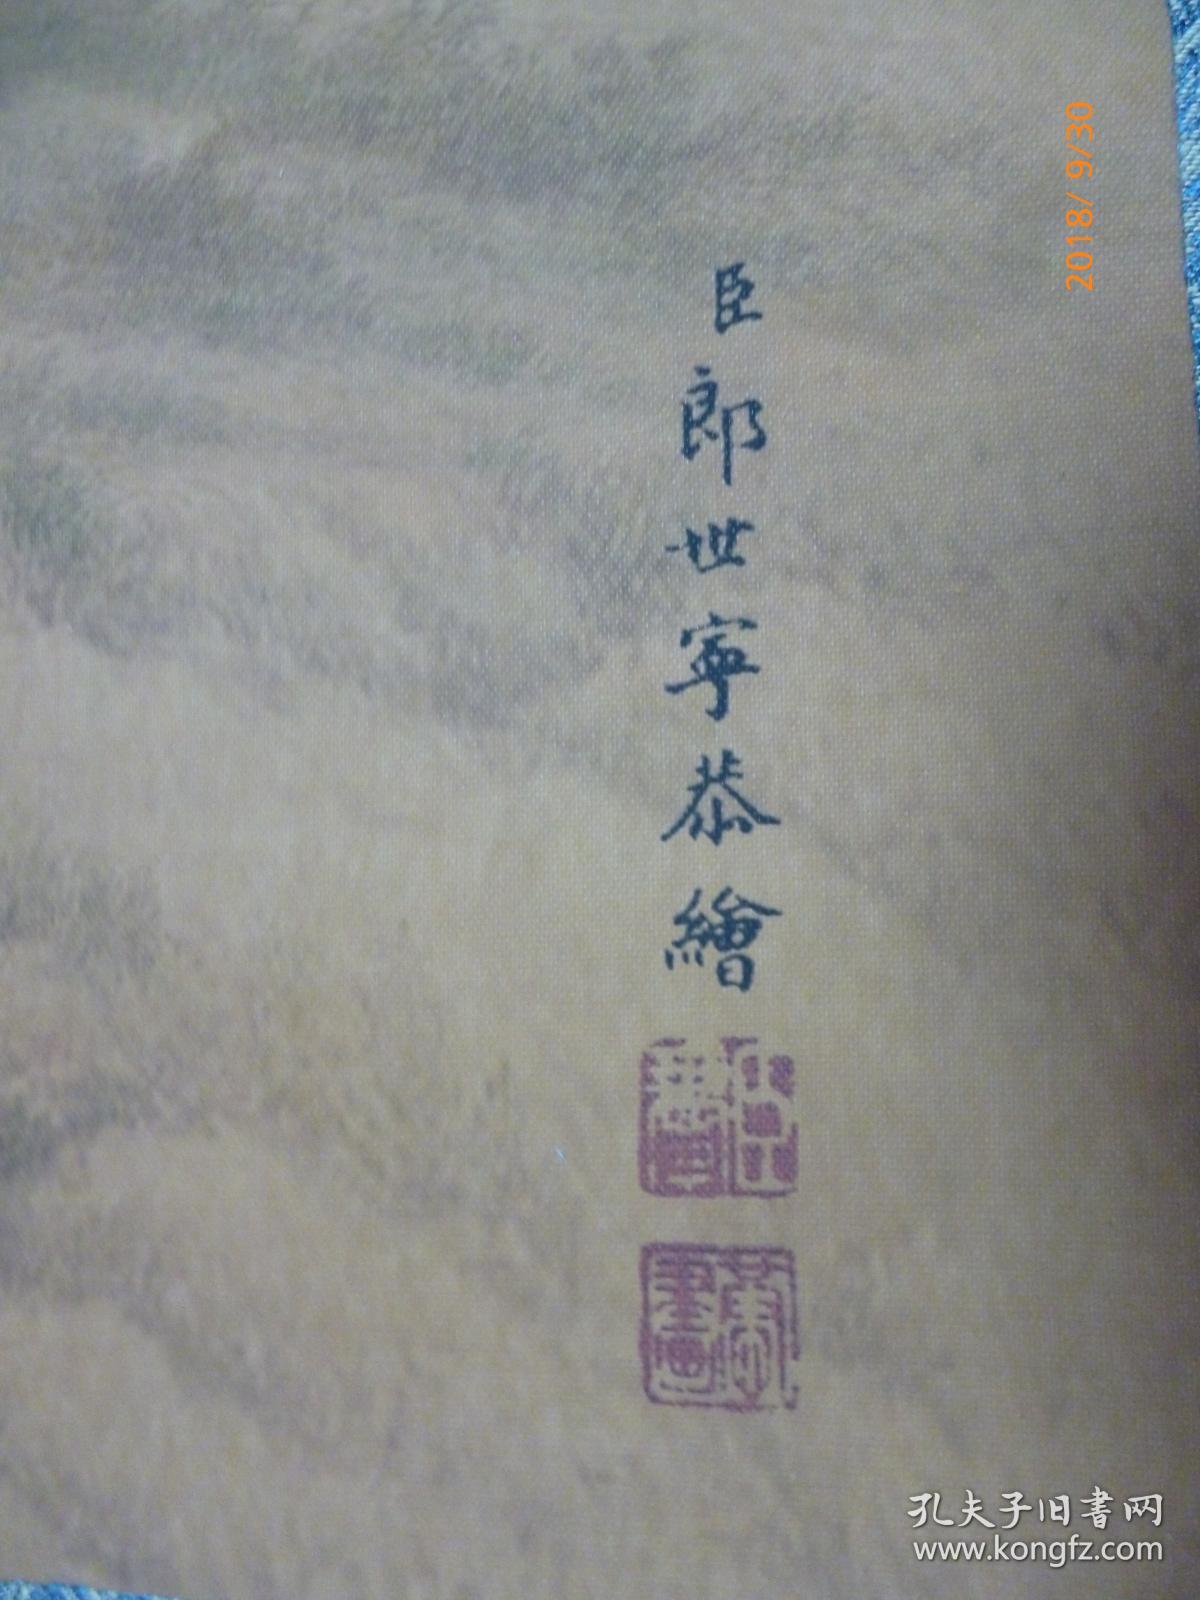 2018/ 9/30
臣郎世寧恭繪
恭畫
孔夫子旧書网
www.kongfz.com